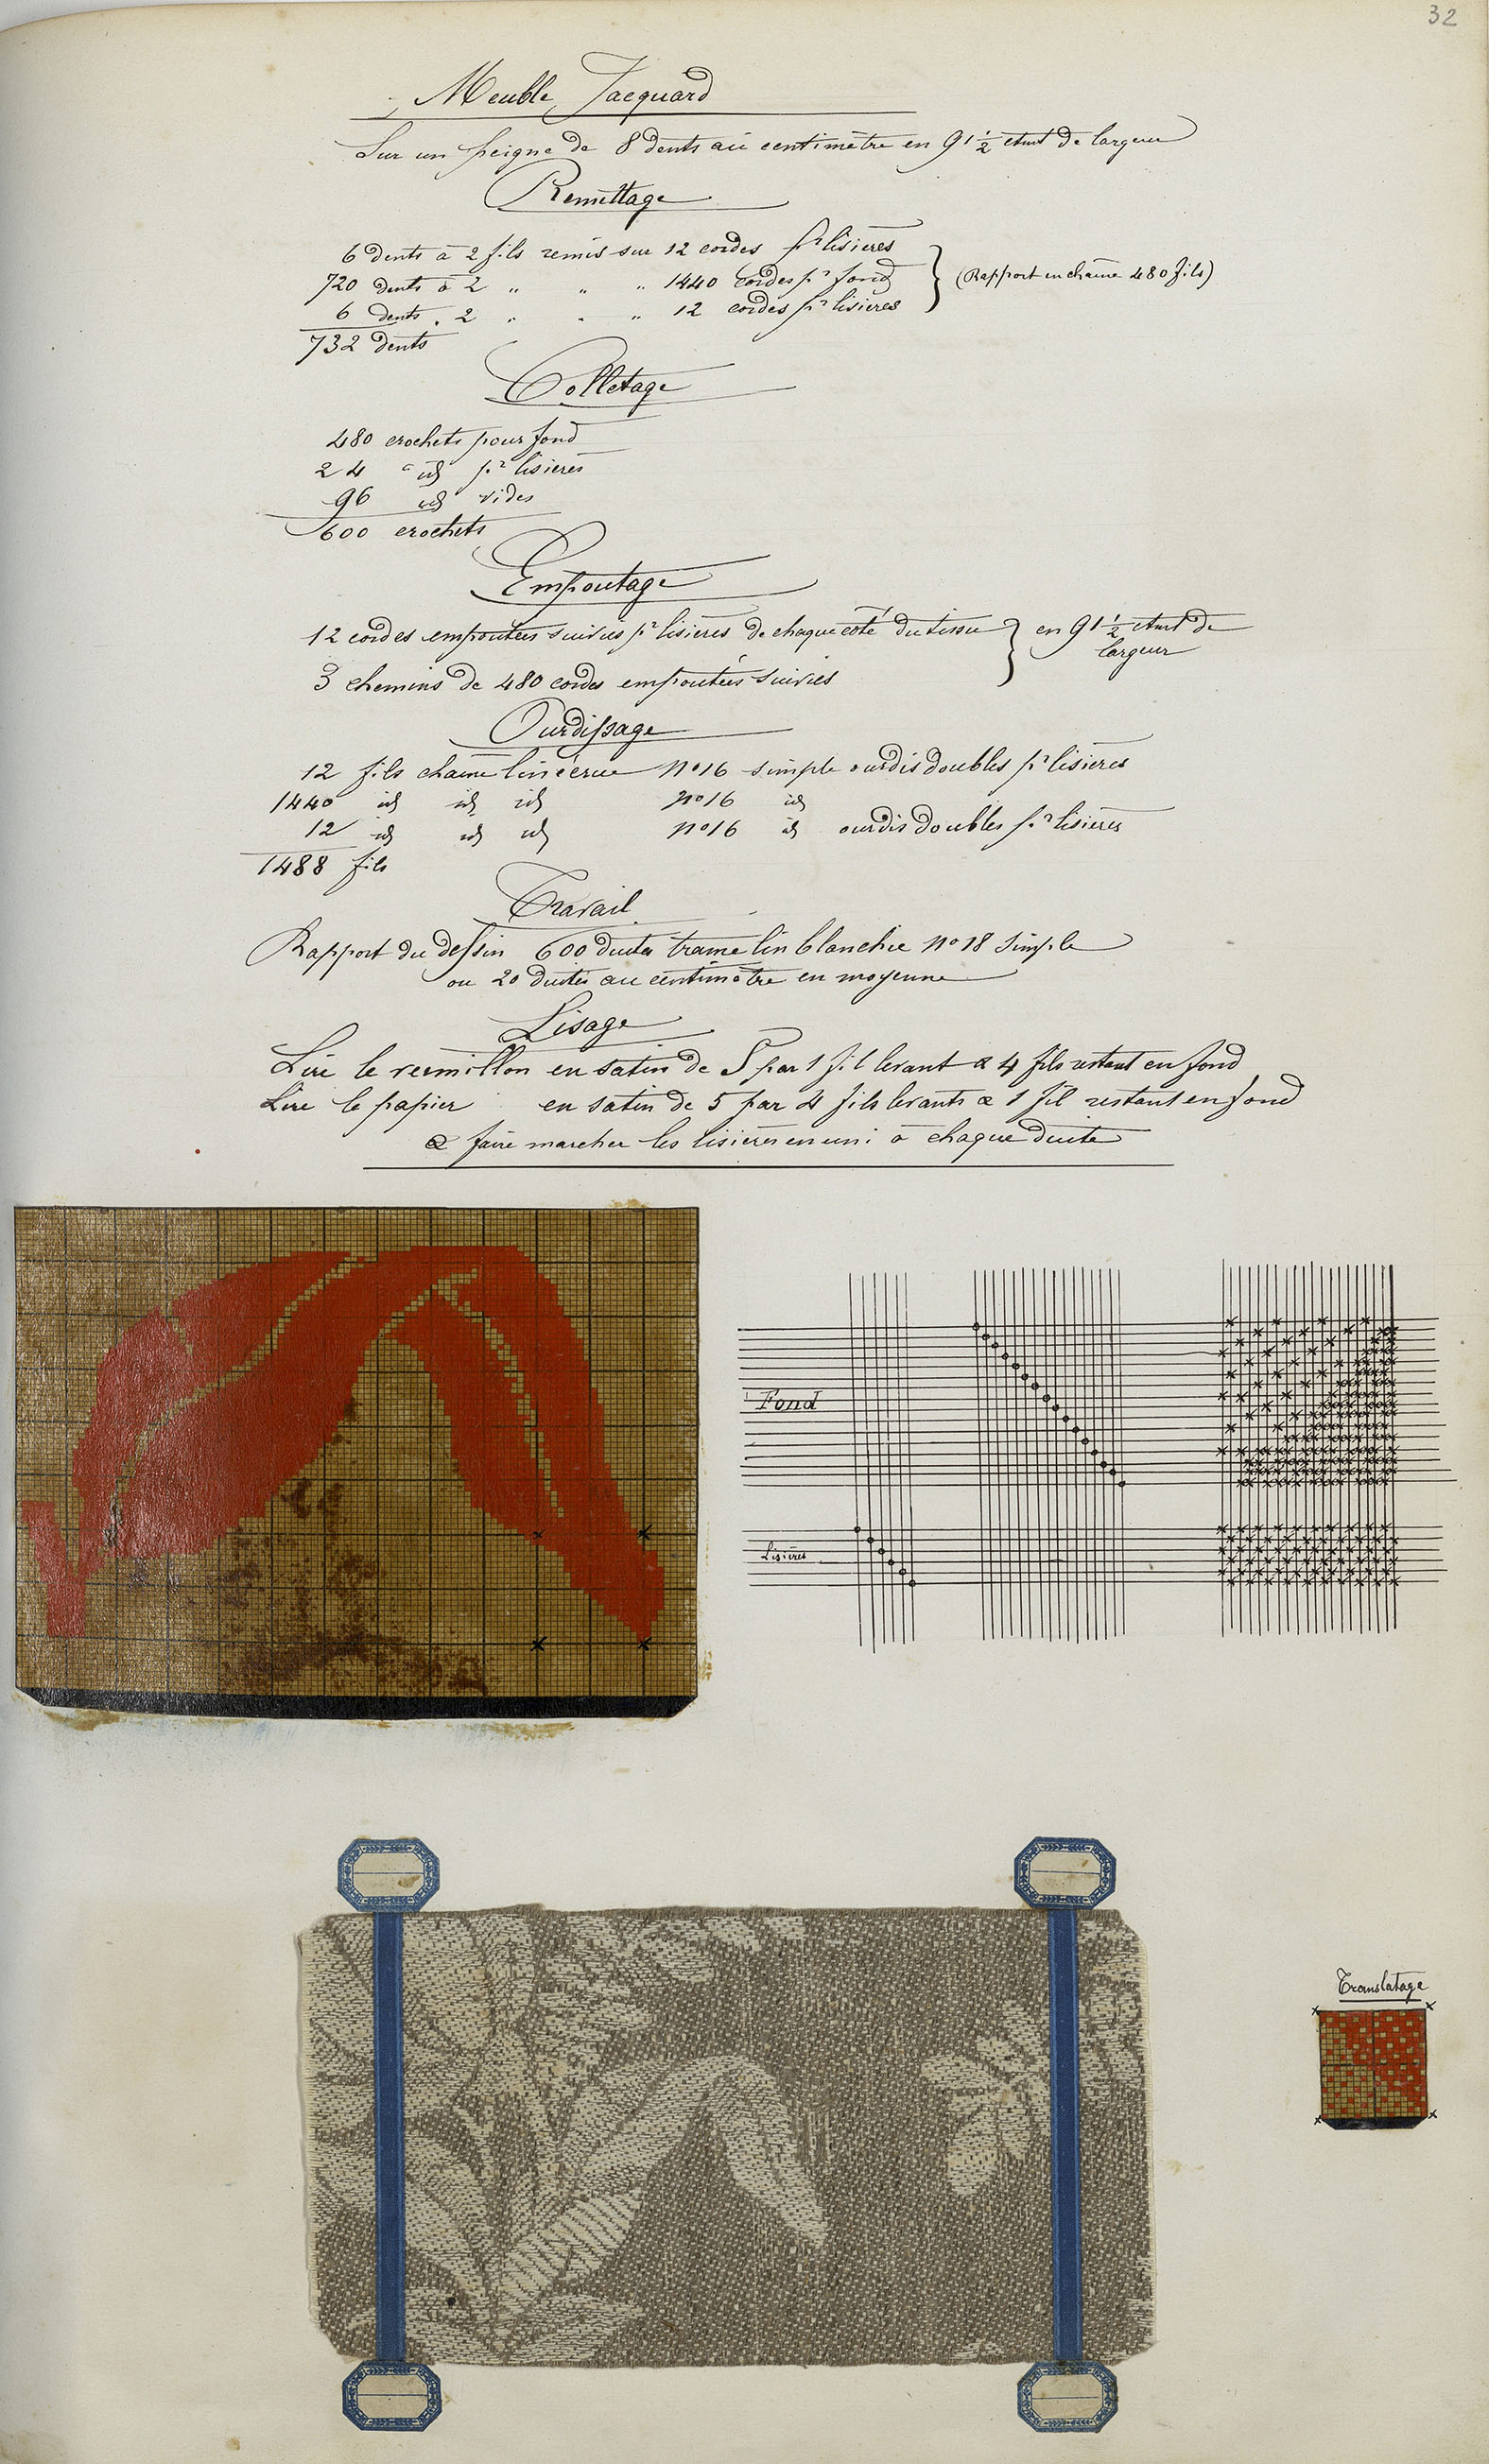 32
Meuble Jacquard
Sur un peigne de 8 dents au centimètre en 91 1/2 ctmt de largeur
Remettage
6 dents à 2 fils remis sur 12 cordes pr lisières
720 dents à 2 " " " 1440 cordes pr fond
6 dents " 2 " " " 12 cordes pr lisières
(Rapport en chaine 480 fils)
732 dents
Colletage
480 crochets pour fond
24 " id pr lisières
96 id vides
600 crochets
Empoutage
12 cordes empoutées suivies pr lisières de chaque coté du tissu
3 chemins de 480 cordes empoutées suivies
en 91 1/2 ctmt de
largeur
Ourdissage
12 fils chaine lin écrue no 16 simple ourdis doubles pr lisières
1440 id id id no 16 id
12 id id id no 16 id ourdis doubles pr lisières
1488 fils
Travail
Rapport du dessin 600 duites trame lin blanchie no 18 simple
ou 20 duites au centimètre en moyenne
Lisage
Lire le vermillon en satin de 5 par 1 fil levant & 4 fils restant en fond
Lire le papier en satin de 5 par 4 fils levants & 1 fil restant en fond
& faire marcher les lisières en uni à chaque duite
Fond
Lisières
Translatage